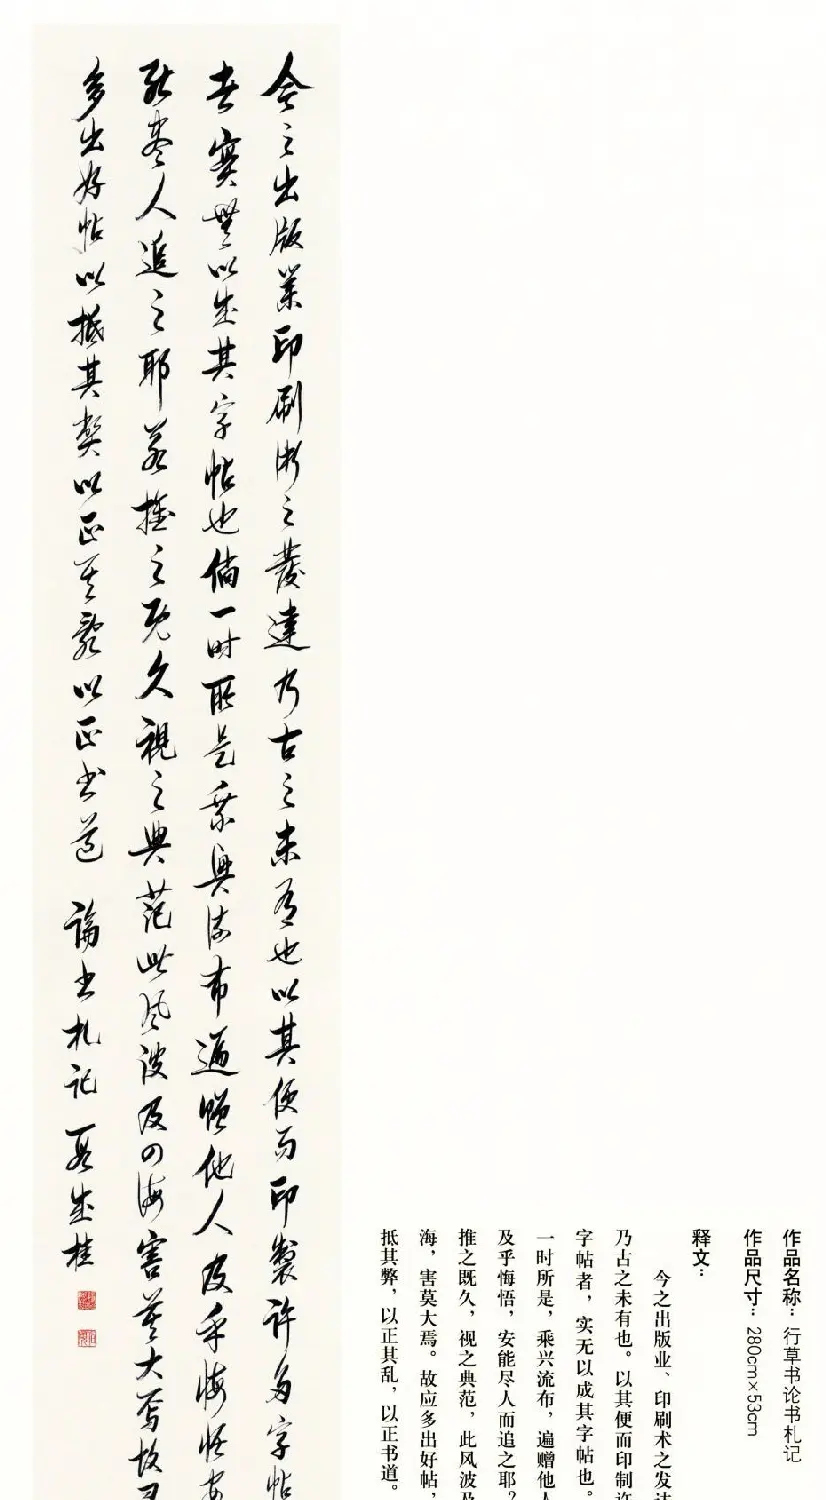 作品名称：行草书论书札记
作品尺寸：280cm×53cm
释文：
今之出版业、印刷术之发达
乃古之未有也。以其便而印制许
字帖者，实无以成其字帖也。
一时所是，乘兴流布，遍赠他人
及乎悔悟，安能尽人而追之耶？
推之既久，视之典范，此风波及
海，害莫大焉。故应多出好帖，
抵其弊，以正其乱，以正书道。
今之出版業印刷術之發達乃古之未有也以其便而印製许多字帖
者實無以成其字帖也倘一时所是乘興流布遍赠他人及乎悔悟安
能尽人追之耶若推之既久視之典范此风波及四海害莫大焉故
多出好帖以抵其弊以正其亂以正书道 論书札记 聂成桂